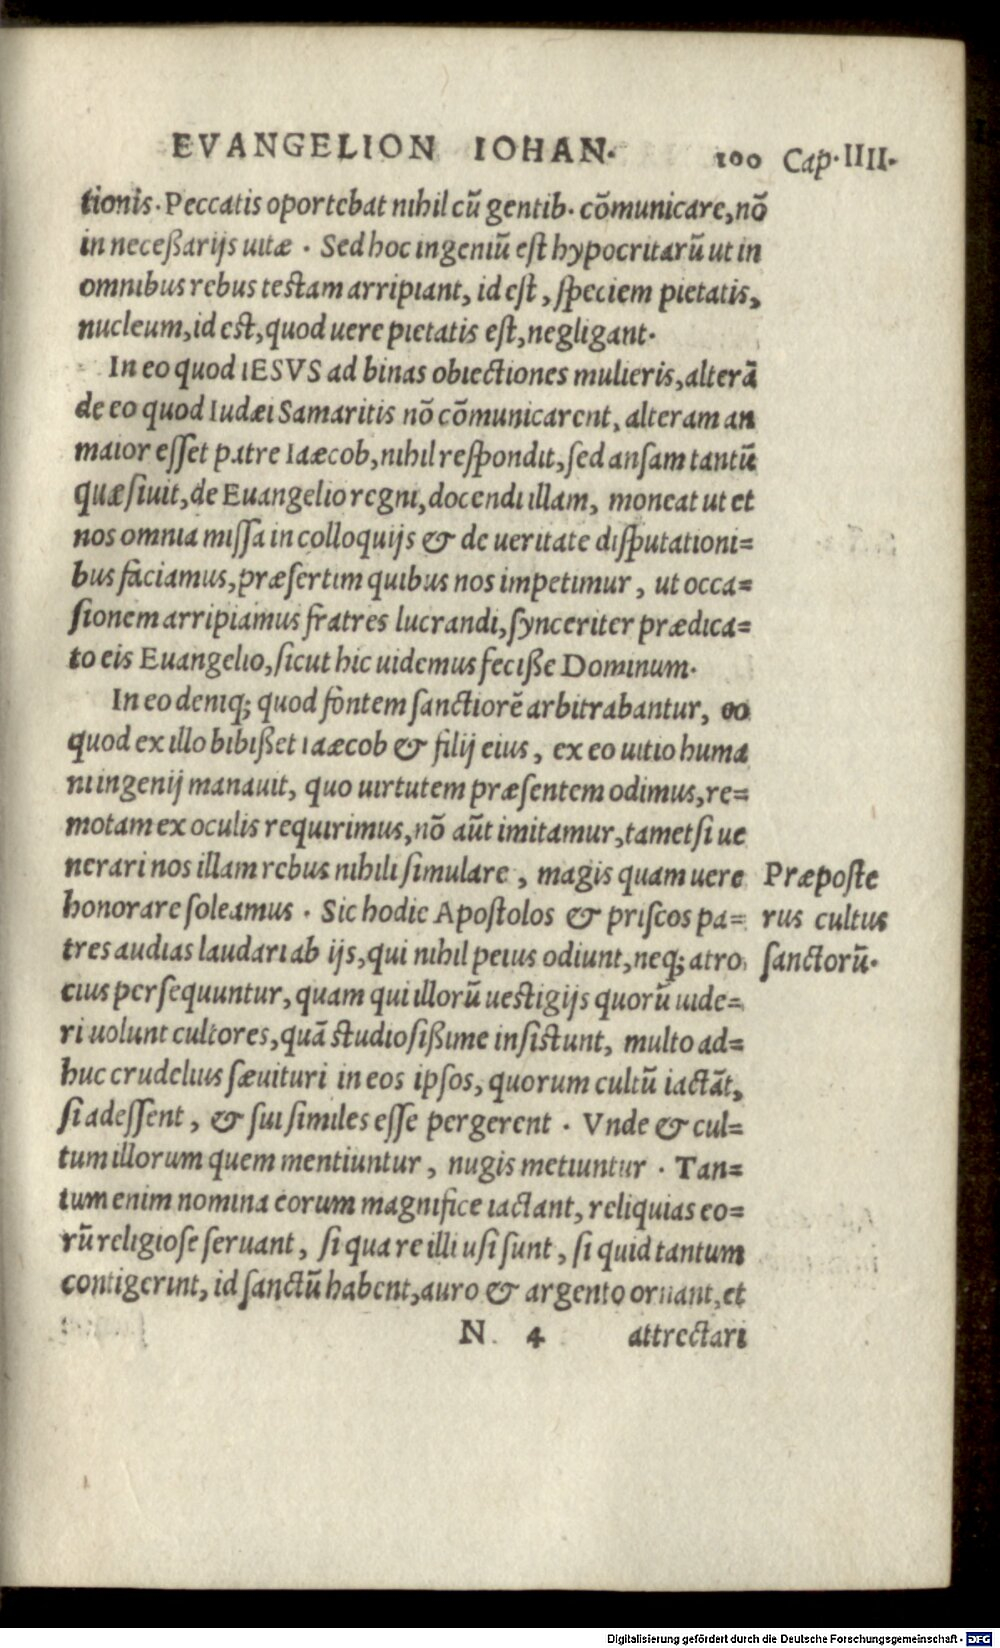 EVANGELION IOHAN. 100 Cap. IIII.
tionis. Peccatis oportebat nihil cũ gentib. cõmunicare, nõ
in neceßarijs uitæ. Sed hoc ingeniũ est hypocritarũ ut in
omnibus rebus testam arripiant, id est, speciem pietatis,
nucleum, id est, quod uere pietatis est, negligant.
In eo quod IESVS ad binas obiectiones mulieris, alterã
de eo quod Iudæi Samaritis nõ cõmunicarent, alteram an
maior esset patre Iaæcob, nihil respondit, sed ansam tantũ
quæsiuit, de Euangelio regni, docendi illam, moneat ut et
nos omnia missa in colloquijs & de ueritate disputationi=
bus faciamus, præsertim quibus nos impetimur, ut occa=
sionem arripiamus fratres lucrandi, synceriter prædica=
to eis Euangelio, sicut hic uidemus feciße Dominum.
In eo deniq; quod fontem sanctiorẽ arbitrabantur, eo
quod ex illo bibißet Iaæcob & filij eius, ex eo uitio huma
ni ingenij manauit, quo uirtutem præsentem odimus, re=
motam ex oculis requirimus, nõ aũt imitamur, tametsi ue
nerari nos illam rebus nihili simulare, magis quam uere
honorare soleamus. Sic hodie Apostolos & priscos pa=
tres audias laudari ab ijs, qui nihil peius odiunt, neq; atro
cius persequuntur, quam qui illorũ uestigijs quorũ uide=
ri uolunt cultores, quã studiosißime insistunt, multo ad=
huc crudelius sæuituri in eos ipsos, quorum cultũ iactãt,
si adessent, & sui similes esse pergerent. Vnde & cul=
tum illorum quem mentiuntur, nugis metiuntur. Tan=
tum enim nomina eorum magnifice iactant, reliquias eo=
rũ religiose seruant, si qua re illi usi sunt, si quid tantum
contigerint, id sanctũ habent, auro & argento ornant, et
N 4 attrectari
Præposte
rus cultus
sanctorũ.
Digitalisierung gefördert durch die Deutsche Forschungsgemeinschaft - DFG